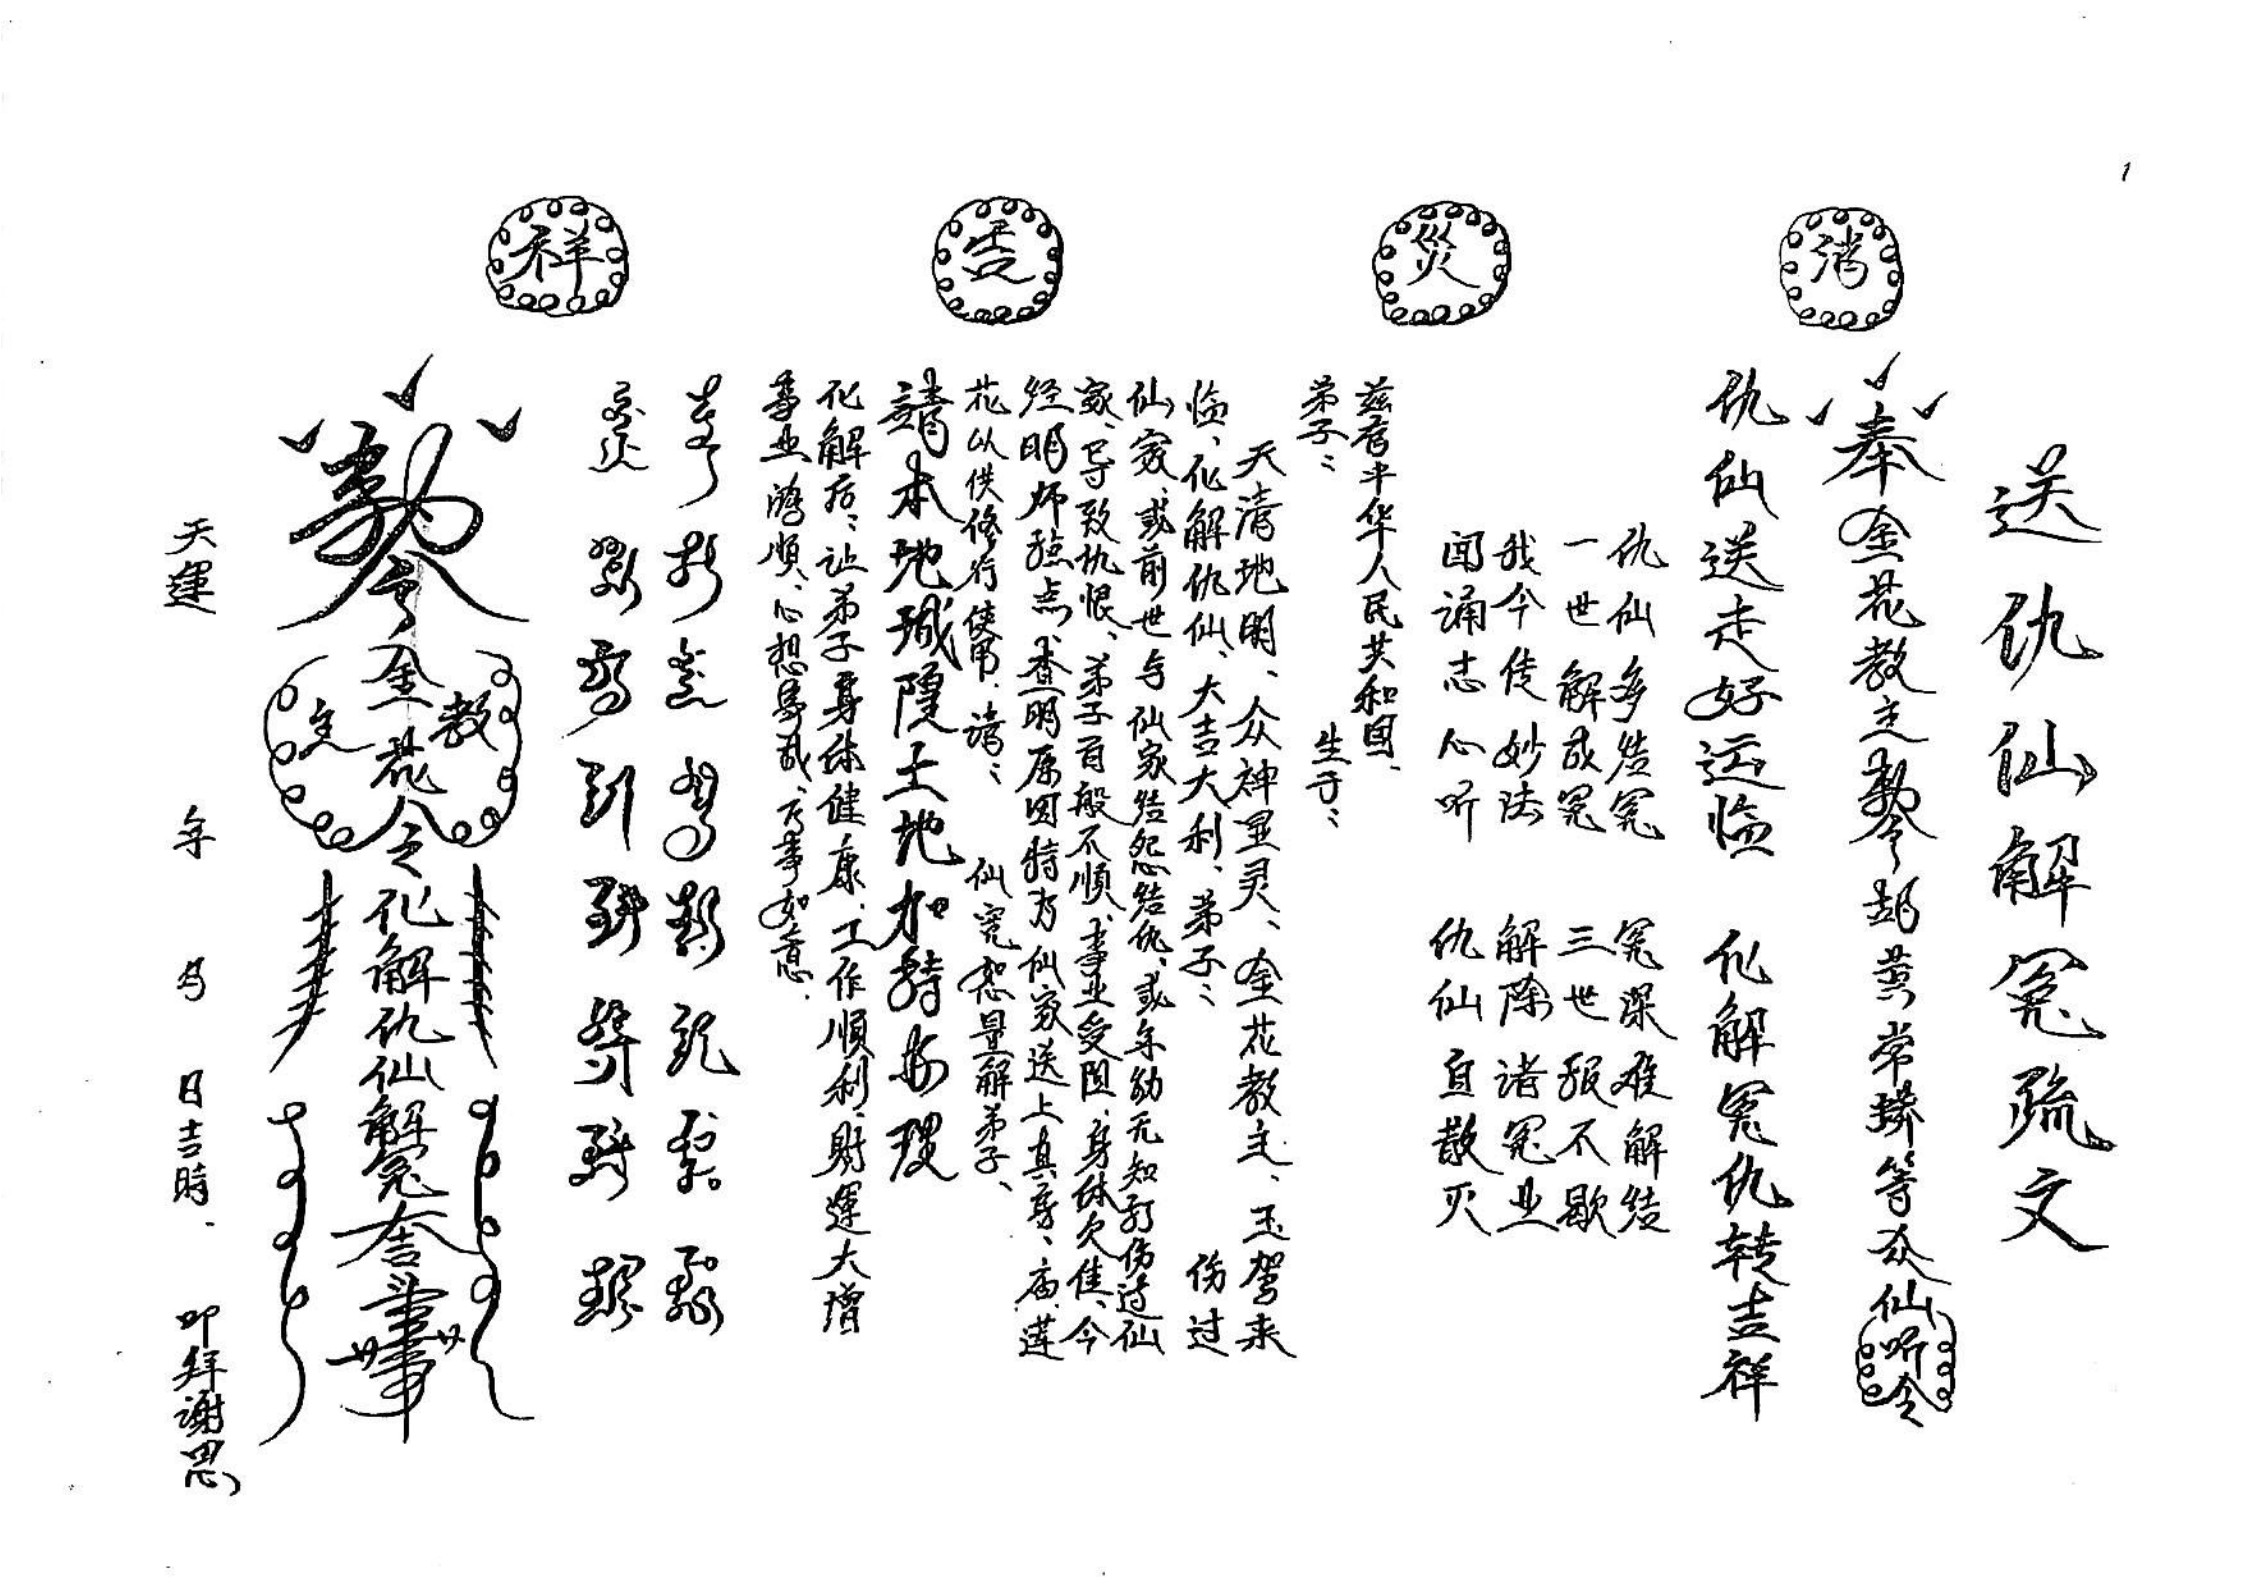 1
消災吉祥
送仇仙解冤疏文
奉金花教主勅令胡黄常蟒等众仙听令
仇仙送走好运临 化解冤仇转吉祥
仇仙多结冤 冤深难解结
一世解成冤 三世报不歇
我今传妙法 解除诸冤业
闻诵志心听 仇仙自散灭
兹有中华人民共和国、
弟子： 生于：
天清地明、众神显灵、金花教主、玉驾来
临、化解仇仙、大吉大利、弟子： 伤过
仙家、或前世与仙家结怨结仇、或年幼无知打伤过仙
家、导致仇恨、弟子百般不順、事业受阻、身体欠佳、今
经明师 点、查明原因特为仙家送上真身、庙、莲
花以供修行使用、请： 仙宽恕量解弟子、
請本地城隍土地加持办理
化解后：让弟子身体健康、工作順利、财運大增
事业 順、心想事成、万事如意.
勅令金花教主令化解仇仙解冤
天運 年 月 日吉時. 叩拜謝恩